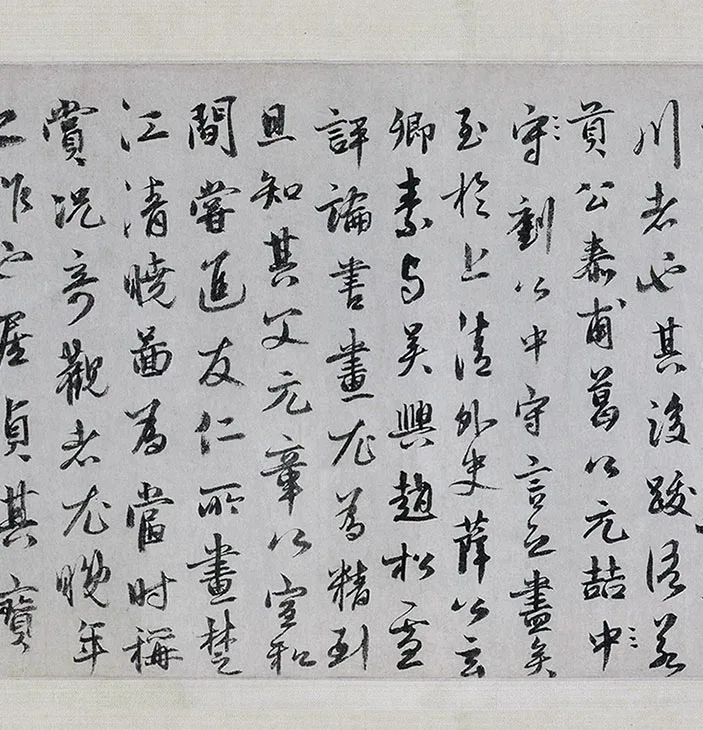 川者也其後跋語若
貢公泰甫葛公元喆中
守劉公中守言之盡矣
至於上清外史薛公玄
卿素與吳興趙松雪
評論書畫尤為精到
且知其父元章以宣和
間嘗進友仁所畫楚
江清曉圖為當時稱
賞況奇觀者尤晚年
之作也屋貞其寶